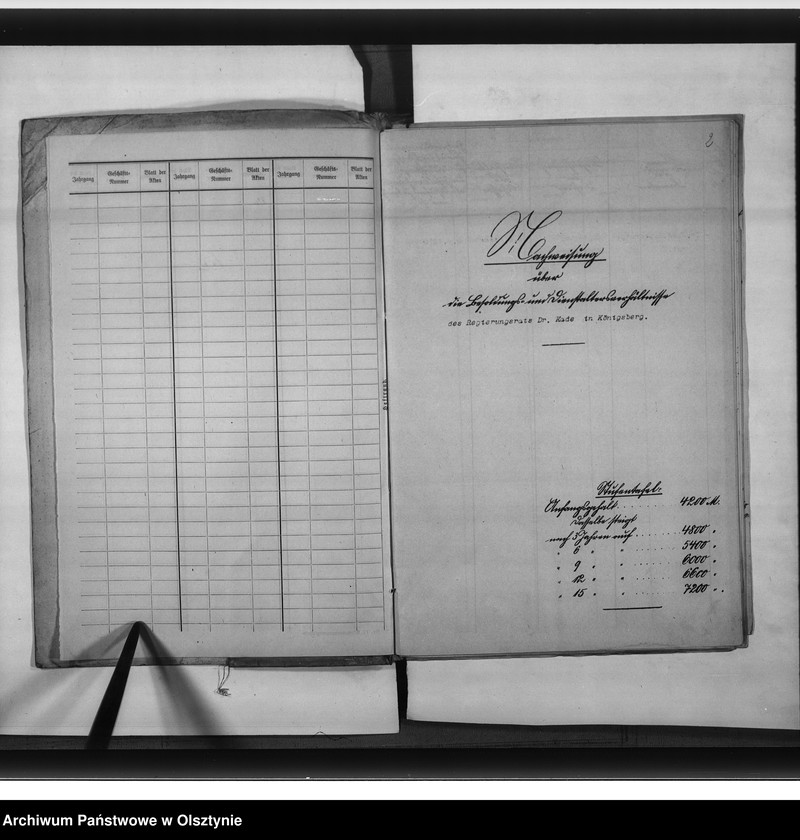 Jahrgang Geschäfts-Nummer Blatt der Akten Jahrgang Geschäfts-Nummer Blatt der Akten Jahrgang Geschäfts-Nummer Blatt der Akten
2
Nachweisung
über
die Besoldungs- und Dienstaltersverhältnisse
des Regierungsrats Dr. Kade in Königsberg.
Stufentafel.
Anfangsgehalt . . . . . . 4200 M.
Dasselbe steigt
nach 3 Jahren auf . . . . . . 4800 "
" 6 " " . . . . . . 5400 "
" 9 " " . . . . . . 6000 "
" 12 " " . . . . . . 6600 "
" 15 " " . . . . . . 7200 " .
Archiwum Państwowe w Olsztynie